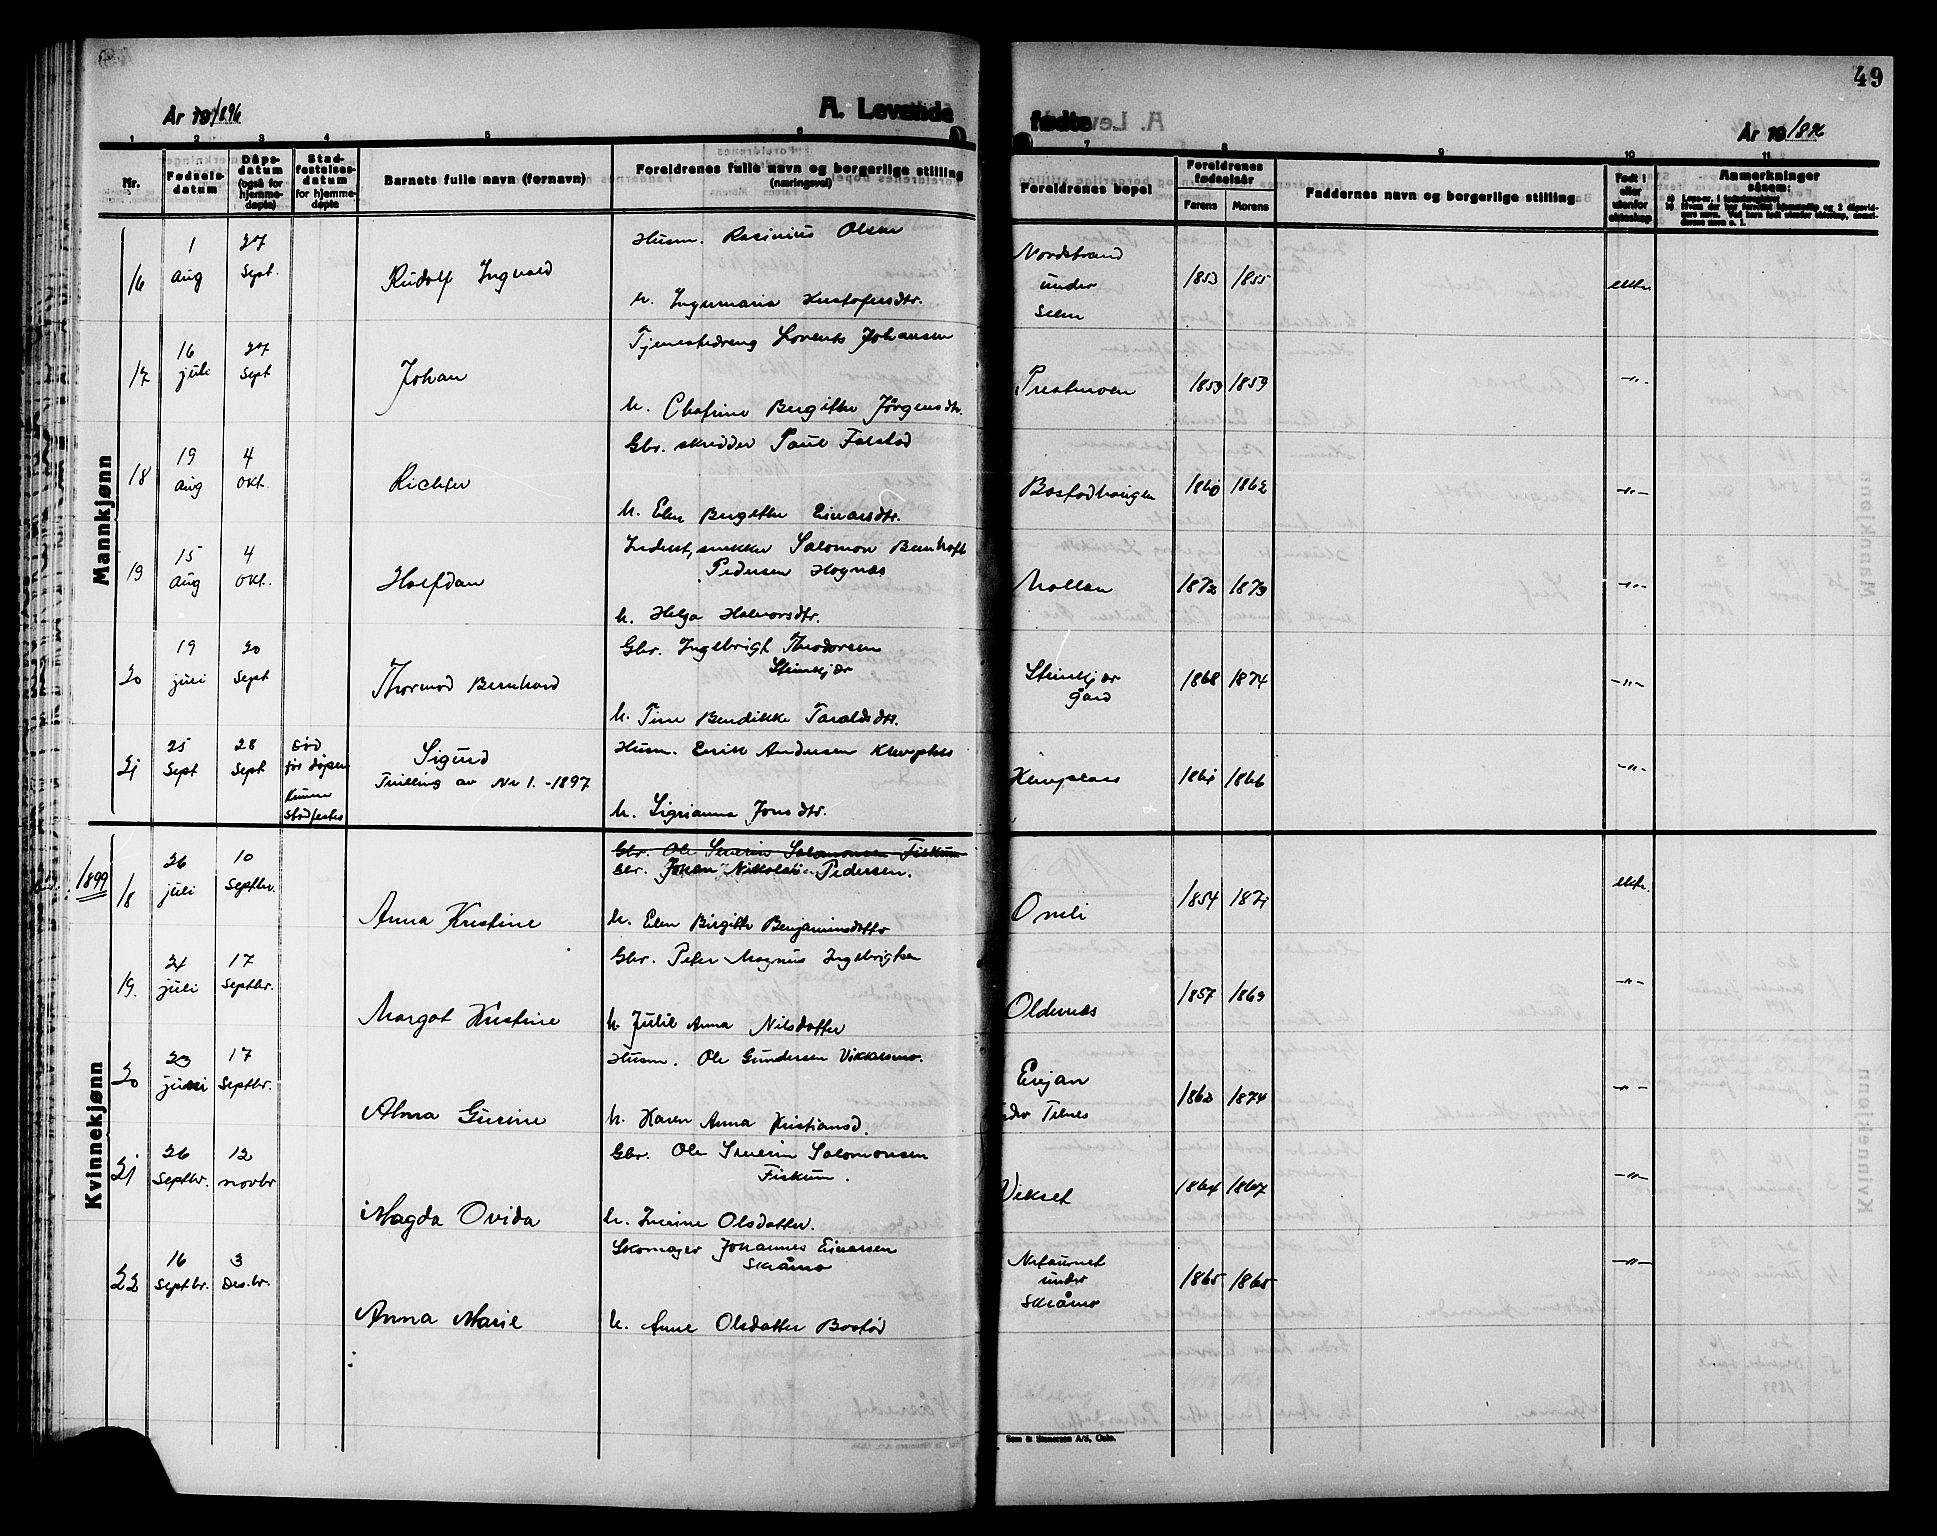 49
År 19/1896
A. Levende
fødte
År 19/1896
1 2 3 4 5 6 7 8 9 10 11
Nr.
Fødsels-
datum
Dåps-
datum
(også for
hjemme-
døpte)
Stad-
festelses-
datum
for hjemme-
døpte
Barnets fulle navn (fornavn)
Foreldrenes fulle navn og borgerlige stilling
(næringsvei)
Foreldrenes bopel
Foreldrenes
fødselsår
Farens
Morens
Faddernes navn og borgerlige stilling
Født i
eller
utenfor
ekteskap
Anmerkninger
såsom:
Mannkjønn
16
1
Aug
27
Sept.
Rudolf Ingvald
Husm. Rasinius Olsen
h. Ingermaria Kristofersdtr.
Nordstrand
under
Selm
1853 1855
ekte.
17
16
juli
27
Sept
Johan
Tjenestedreng Lorents Johansen
h. Chatrine Bergitte Jörgensdtr.
Prestmoen
1859 1859
-"-
18
19
Aug
4
Okt.
Richter
Gbr. skredder Paul Falstad
h. Elen Bergitte Einarsdtr.
Bostadhaugen
1860 1862
-"-
19
15
Aug
4
Okt.
Halfdan
Inderst, snekker Salomon Bernhoft
Pedersen Hognes
h. Helga Halvorsdtr.
Mollan
1872 1873
-"-
20
19
juli
20
Sept
Thormod Bernhard
Gbr. Ingebrigt Theodorsen
Steinkjær
h. Tine Bendikke Taraldsdtr.
Steinkjær
gård
1868 1874
-"-
21
25
Sept
28
Sept
Död
før døpen
kunne
stadfestes
Sigurd
Tvilling av Nr 1. - 1897
Husm. Erik Andersen Klevplass
h. Sigrianna Jonsdtr.
Klevplass
1861 1866
-"-
Kvinnekjønn
1899
18
26
juli
10
Septbr.
Anna Kristine
Gbr. Ole Severin Salomonsen Fiskum
Gbr. Johan Nikolai Pedersen.
h. Elen Birgitte Benjaminsdatter
Onsli
1854 1871
ekte.
19.
24
juli
17
Septbr.
Margot Kristine
Gbr. Peter Magnus Ingebrigtsen
h. Julie Anna Nilsdatter
Oldernes
1857 1869
-"-
20
23
juni
17
Septbr.
Alma Gurine
Husm. Ole Gundersen Vikkesmo.
h. Karen Anna Kristiansd.
Evjan
under Tilnes
1862 1874
-"-
21
26
Septbr.
12
novbr
Magda Ovida
Gbr. Ole Severin Salomonsen
Fiskum.
h. Iverine Olsdatter.
Vikset
1864 1867
-"-
22
16
Septbr.
3
Des.br.
Anna Marie
Skomager Johannes Einarsen
Skråmo
h. Anne Olsdatter Bostad
under
Skråmo
1865 1865
-"-
Sem & Stenersen A/S, Oslo.